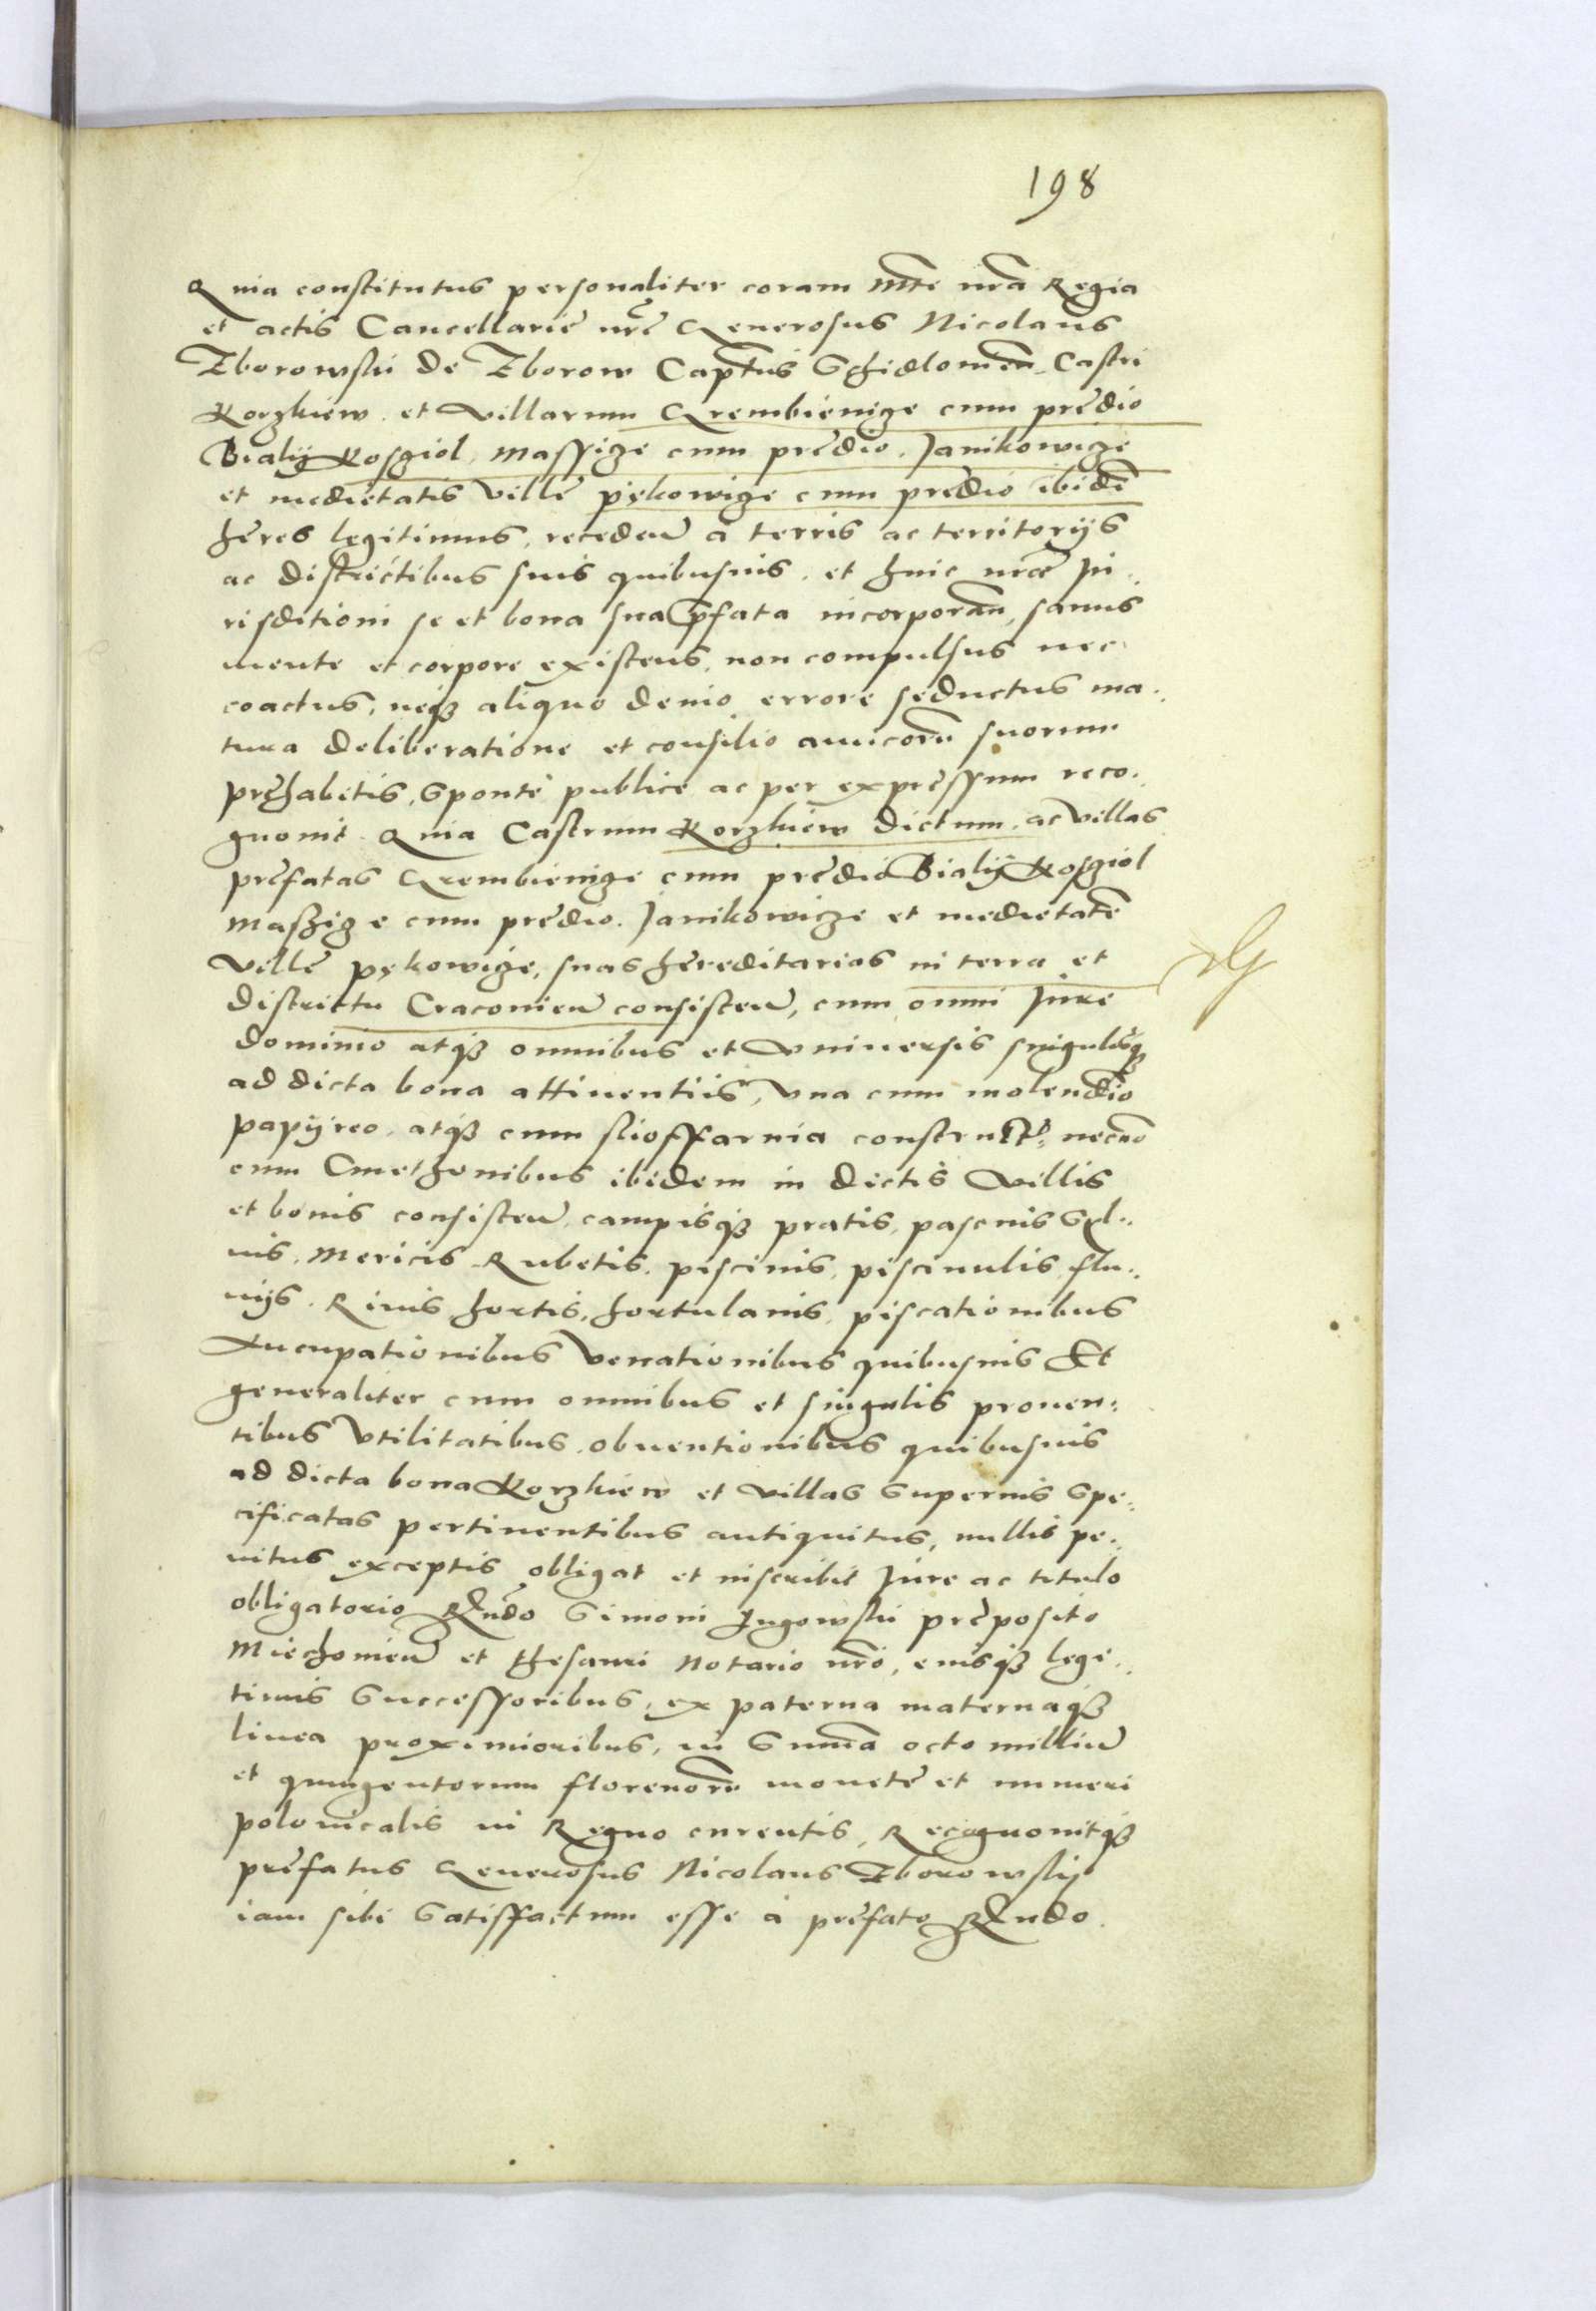 198
Quia constitutus personaliter coram Mte nra Regia
et actis Cancellarie nre Generosus Nicolaus
Zborowski de Zborow Captus Schidlowien. Castri
Korzkiew et villarum Grembienicze cum predio
Bialÿ Kosziol, Massicze cum predio. Janikowicze
et medietatis ville pękowicze cum predio ibidē
heres legitimus, receden a terris ac territorijs
ac districtibus suis quibusuis, et huic nrae Ju..
risditioni se et bona sua pfata incorporan, sanus
mente et corpore existens, non compulsus nec
coactus, neqz aliquo deuio errore seductus ma..
tura deliberatione et consilio amicorū suorum
prehabitis, sponte publice ac per expressum reco..
gnouit. Quia Castrum Korzkiew dictum, ac villas
prefatas Grembienicze cum predio Bialÿ Kosziol
Maszicze cum predio. Janikowicze et medietatē
ville pękowicze, suas hereditarias in terra et
districtu Cracouien consisten, cum omni Jure
dominio atqz omnibus et vniuersis singulisqz
ad dicta bona attinentiis, vna cum molendīo
papÿreo, atqz cum slioffarnia constructo, necno
cum Cmethonibus ibidem in dictis villis
et bonis consisten, campisqz pratis, pascuis Syl..
uis, Mericis Rubetis, piscinis, piscinulis, flu..
uijs. Riuis hortis, hortulanis, piscationibus
Aucupationibus Venationibus quibusuis Et
generaliter cum omnibus et singulis prouen..
tibus Vtilitatibus, obuentionibus quibusuis
ad dicta bona Korzkiew et villas superius spe..
cificatas pertinentibus antiquitus, nullis pe..
nitus exceptis obligat et inscribit Jure ac titulo
obligatorio Rndo Simoni Lugowski preposito
Miechouien et thesauri Notario nro, eiusqz legi..
timis Successoribus, ex paterna maternaqz
linea proximioribus, in Suma octo milliū
et quingentorum florenorū monete et numeri
polonicalis in Regno currentis, Recognouitqz
prefatus Generosus Nicolaus Zborowskÿ
iam sibi satisfactum esse a prefato Rndo.